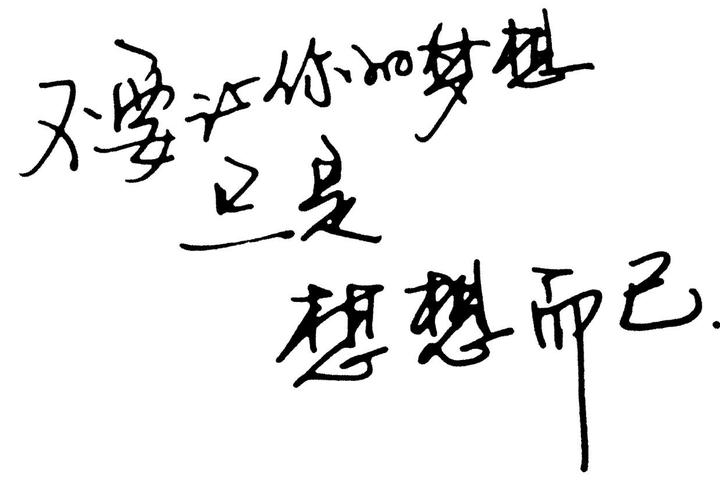 不要让你的梦想
只是
想想而已.